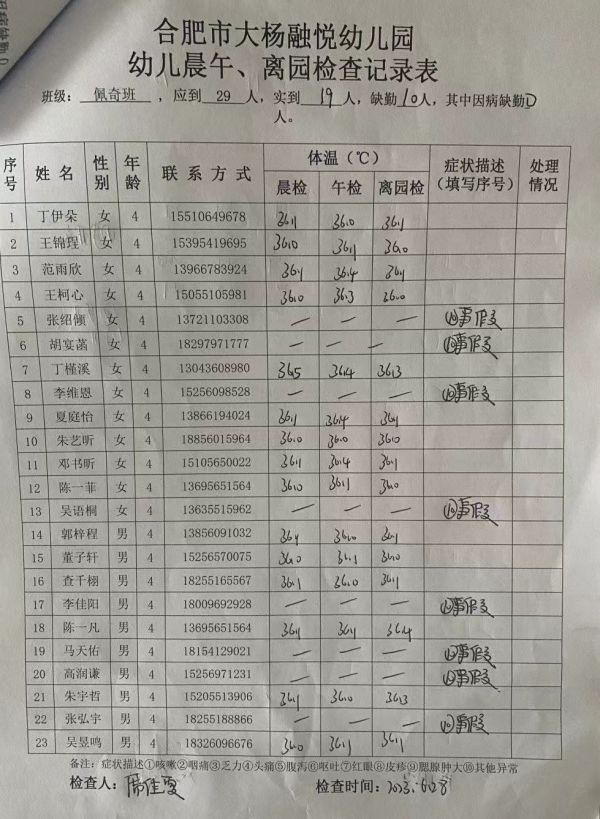 合肥市大杨融悦幼儿园
幼儿晨午、离园检查记录表
班级：佩奇班，应到 29 人，实到 19 人，缺勤 10 人，其中因病缺勤 0
人。
序号 姓名 性别 年龄 联系方式 体温（℃） 症状描述（填写序号） 处理情况
晨检 午检 离园检
1 丁伊朵 女 4 15510649678 36.1 36.0 36.1
2 王锦珵 女 4 15395419695 36.0 36.1 36.0
3 范雨欣 女 4 13966783924 36.1 36.4 36.1
4 王柯心 女 4 15055105981 36.0 36.3 36.0
5 张绍倾 女 4 13721103308 — — — ⑩事假
6 胡宴菡 女 4 18297971777 — — — ⑩事假
7 丁槿溪 女 4 13043608980 36.5 36.4 36.3
8 李维恩 女 4 15256098528 — — — ⑩事假
9 夏庭怡 女 4 13866194024 36.1 36.4 36.1
10 朱艺昕 女 4 18856015964 36.0 36.0 36.0
11 邓书昕 女 4 15105650022 36.1 36.4 36.1
12 陈一菲 女 4 13695651564 36.0 36.1 36.0
13 吴语桐 女 4 13635515962 — — — ⑩事假
14 郭梓程 男 4 13856091032 36.4 36.0 36.1
15 董子轩 男 4 15256570075 36.0 36.1 36.0
16 查千栩 男 4 18255165567 36.1 36.0 36.1
17 李佳阳 男 4 18009692928 — — — ⑩事假
18 陈一凡 男 4 13695651564 36.1 36.1 36.4
19 马天佑 男 4 18154129021 — — — ⑩事假
20 高润谦 男 4 15256971231 — — — ⑩事假
21 朱宇哲 男 4 15205513906 36.1 36.0 36.3
22 张弘宇 男 4 18255188866 — — — ⑩事假
23 吴昱鸣 男 4 18326096676 36.0 36.1 36.1
备注：症状描述①咳嗽②咽痛③乏力④头痛⑤腹泻⑥呕吐⑦红眼⑧皮疹⑨腮腺肿大⑩其他异常
检查人： 检查时间：2023.6.28